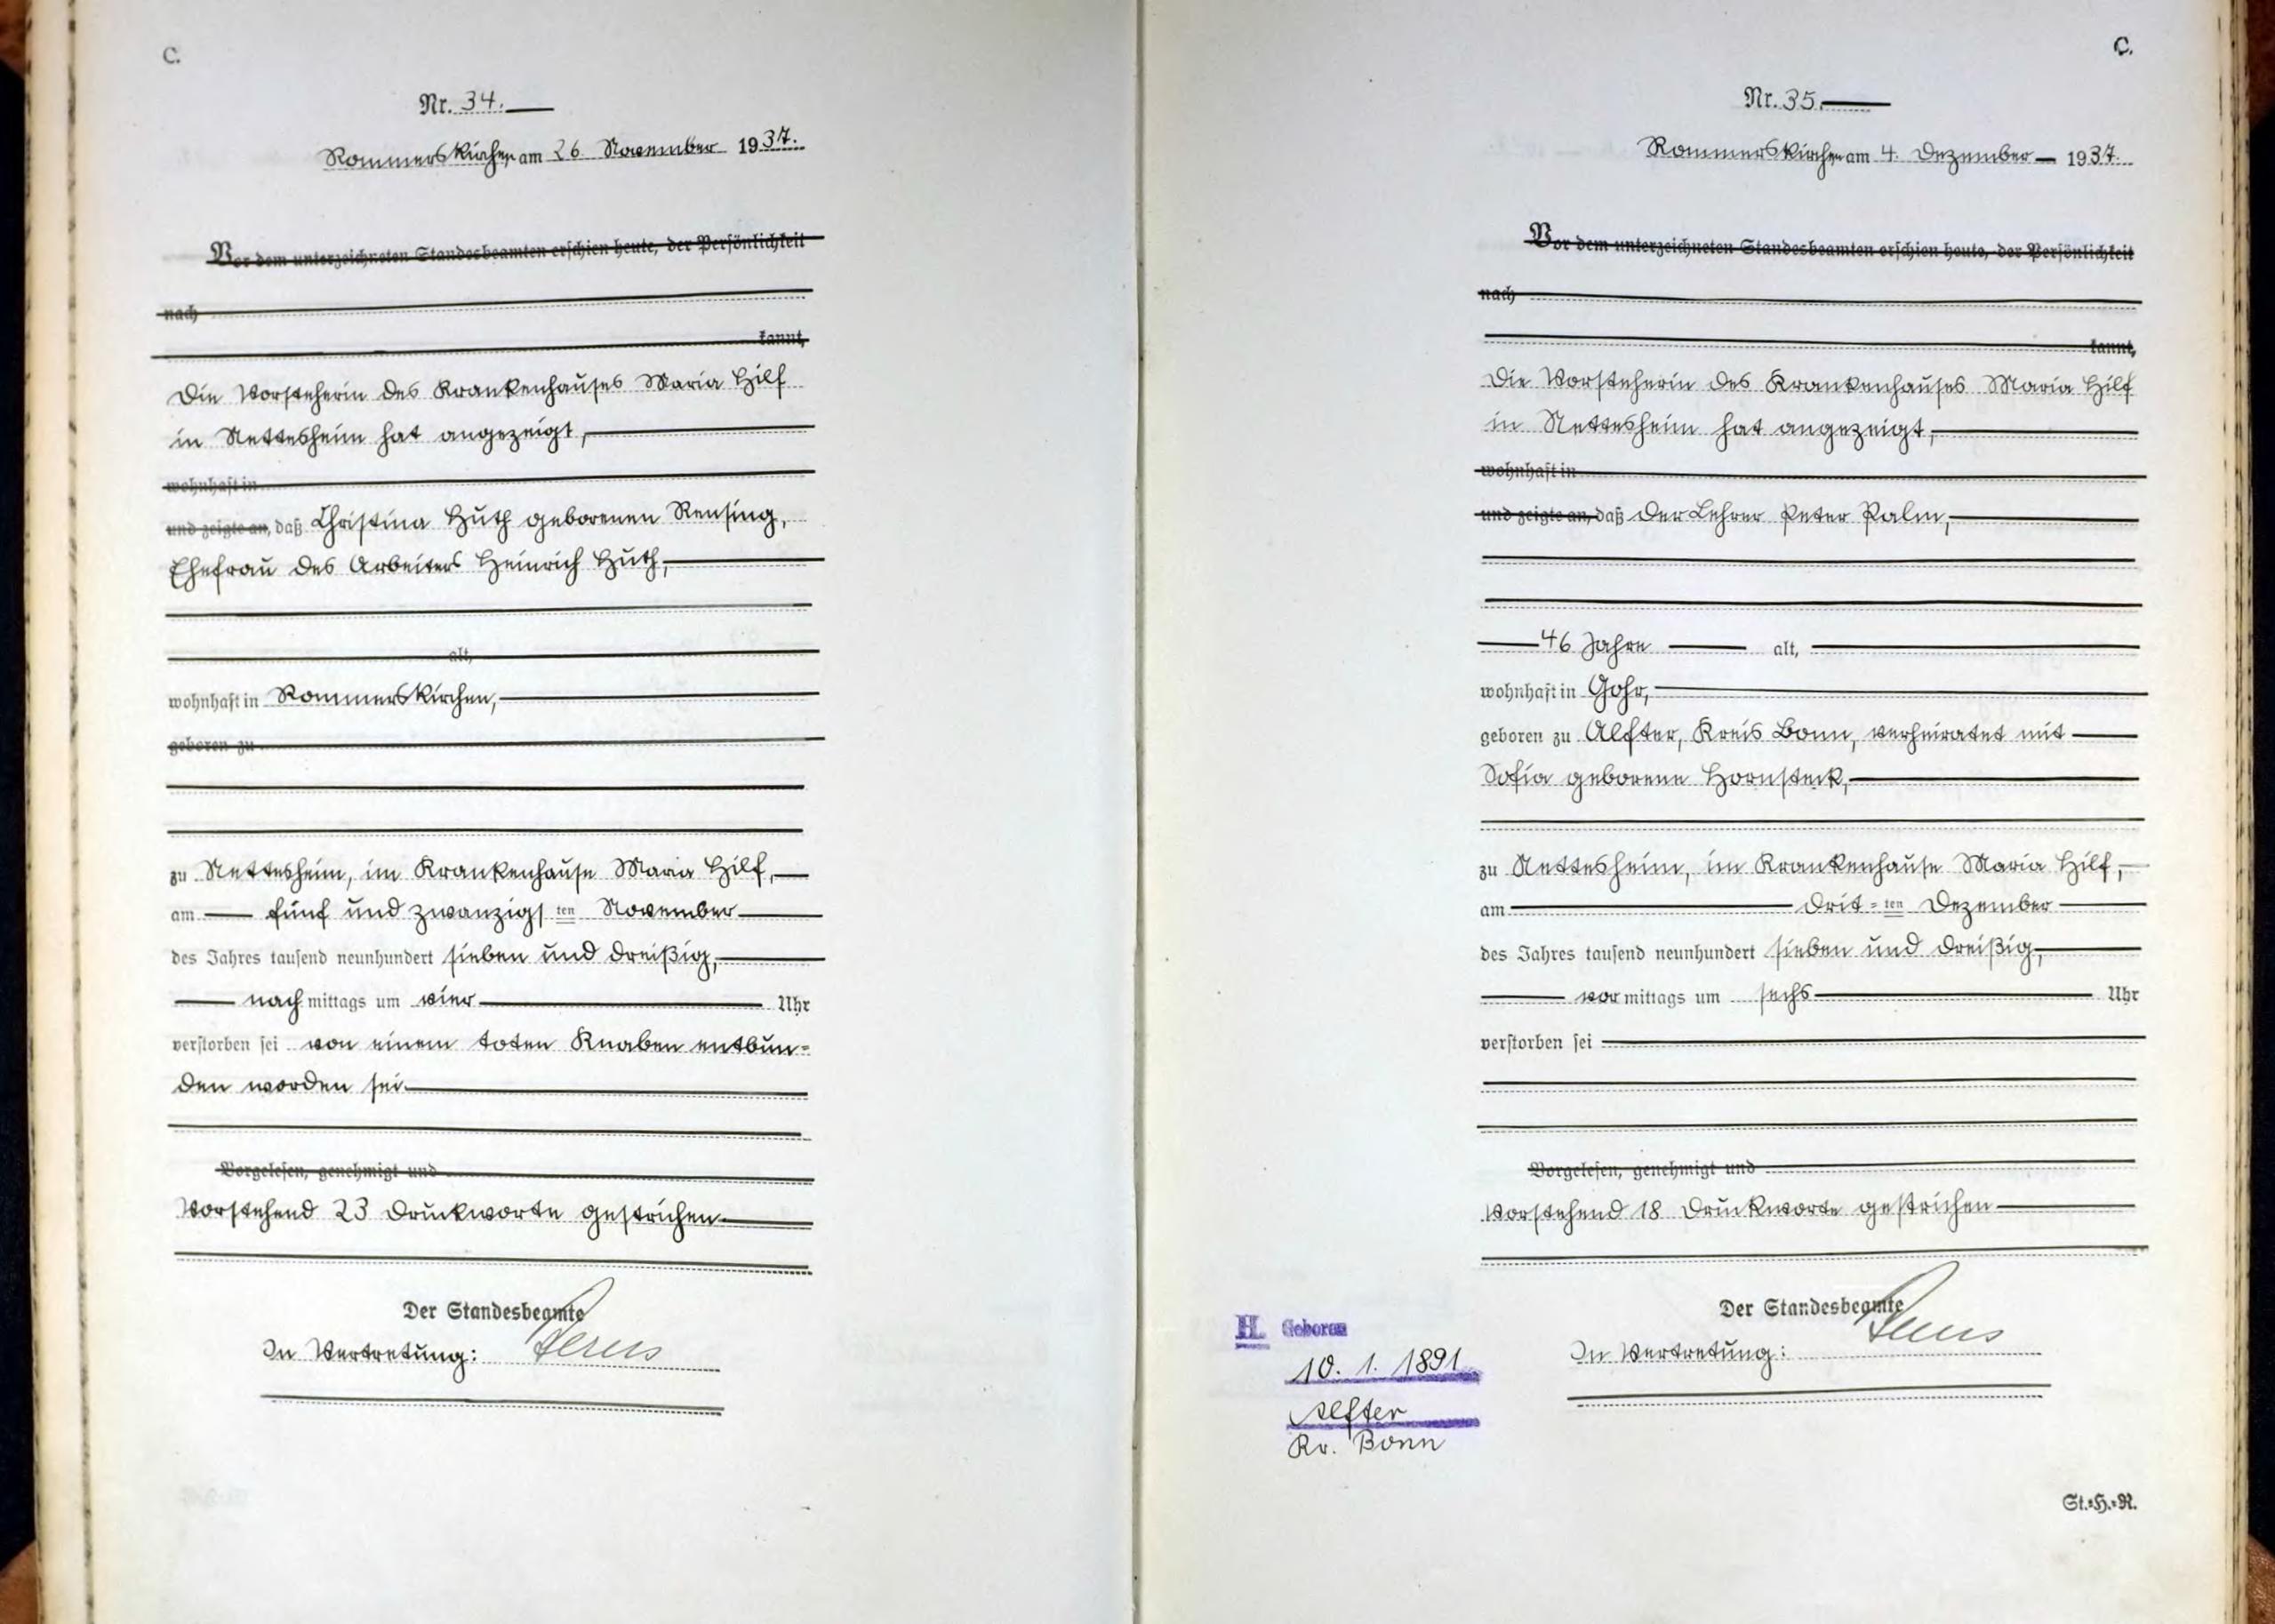 C.
Nr. 34.
Rommerskirchen am 26. November 1937.
Vor dem unterzeichneten Standesbeamten erschien heute, der Persönlichkeit
nach
kannt,
Die Vorsteherin des Krankenhauses Maria Hilf
in Nettesheim hat angezeigt,
wohnhaft in
und zeigte an, daß Christina Huth geborenen Rensing,
Ehefrau des Arbeiters Heinrich Huth,
alt,
wohnhaft in Rommerskirchen,
geboren zu
zu Nettesheim, im Krankenhause Maria Hilf,
am fünf und zwanzigsten November
des Jahres tausend neunhundert sieben und dreißig,
nachmittags um vier Uhr
verstorben sei von einem toten Knaben entbun=
den worden sei
Vorgelesen, genehmigt und
Vorstehend 23 Druckworte gestrichen
Der Standesbeamte
In Vertretung:
C.
Nr. 35.
Rommerskirchen am 4. Dezember 1937.
Vor dem unterzeichneten Standesbeamten erschien heute, der Persönlichkeit
nach
kannt,
Die Vorsteherin des Krankenhauses Maria Hilf
in Nettesheim hat angezeigt,
wohnhaft in
und zeigte an, daß der Lehrer Peter Palm,
46 Jahre alt,
wohnhaft in Gohr,
geboren zu Alfter, Kreis Bonn, verheiratet mit
Sofia geborene Hornsteck,
zu Nettesheim, im Krankenhause Maria Hilf,
am drit=ten Dezember
des Jahres tausend neunhundert sieben und dreißig,
vormittags um sechs Uhr
verstorben sei
Vorgelesen, genehmigt und
Vorstehend 18 Druckworte gestrichen
Der Standesbeamte
In Vertretung:
H. Geboren
10. 1. 1891
Alfter
Kr. Bonn
St.=H.=R.